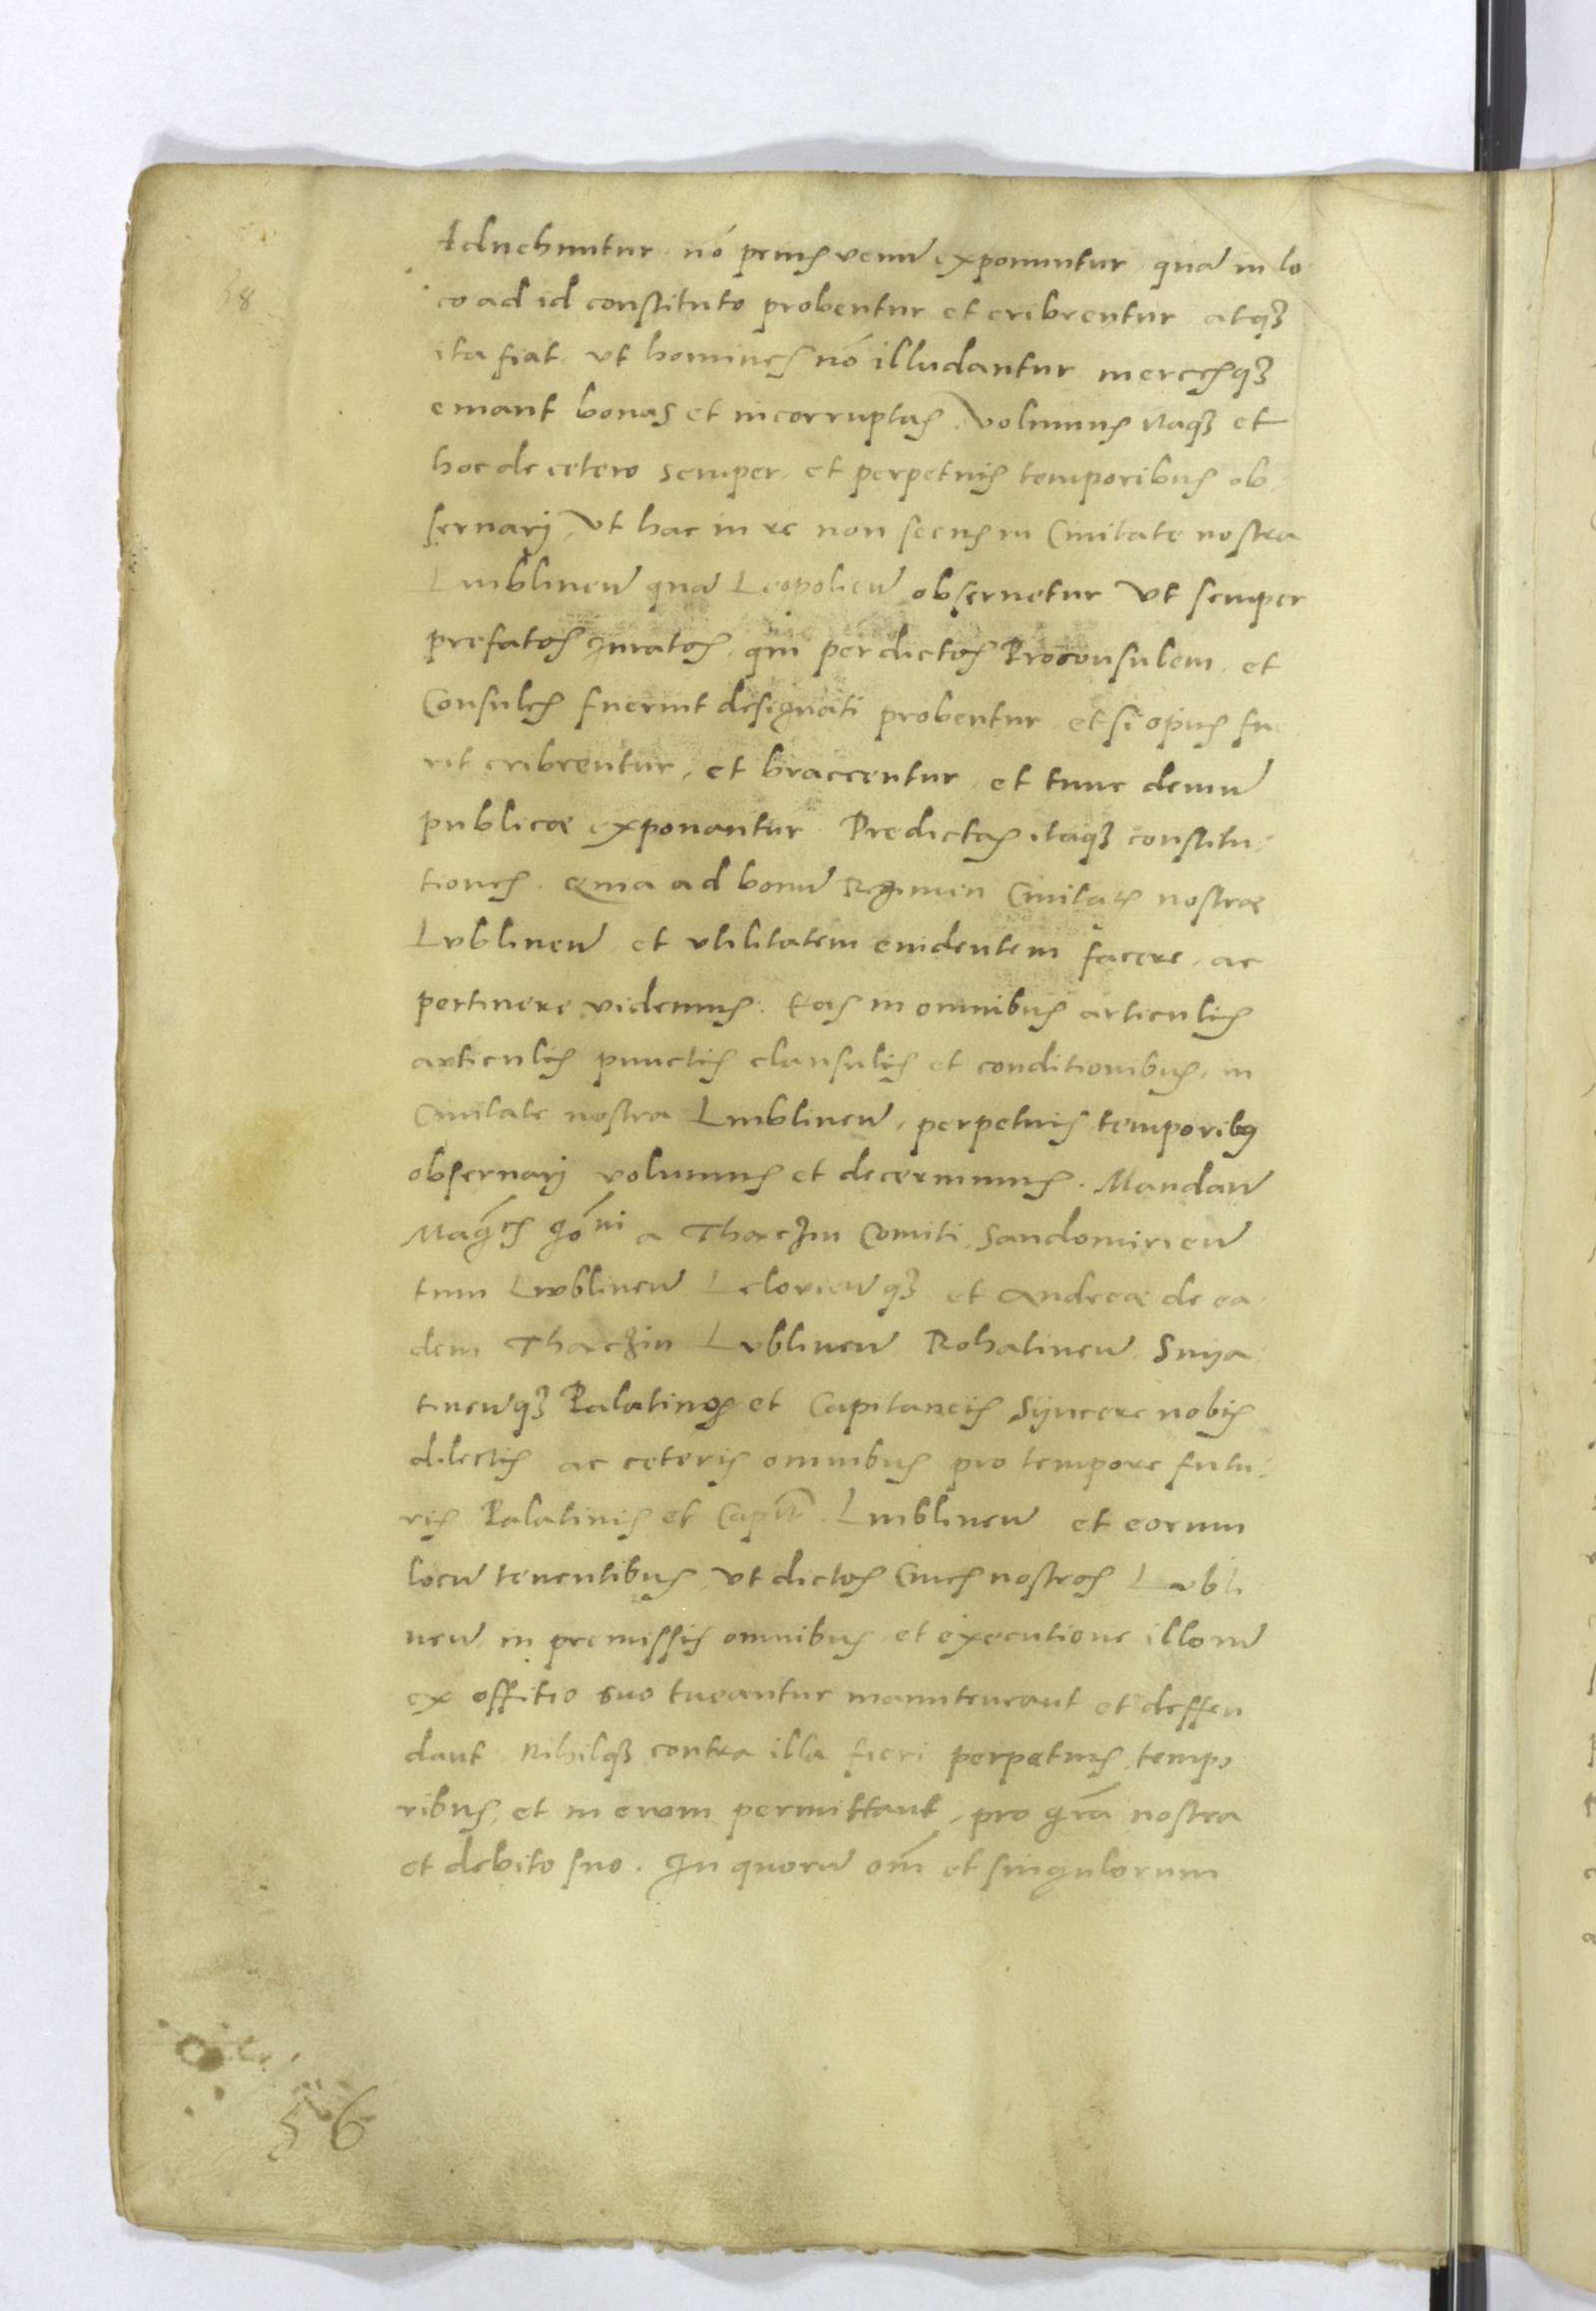 Aduehuntur nō prius venū exponuntur quā in lo
co ad id constituto probentur et cribrentur atqȝ
ita fiat vt homines nō illudantur mercesqȝ
emant bonas et incorruptas. Volumus Itaqȝ et
hoc de cetero semper et perpetuis temporibus ob
seruarj, Vt hac in re non secus in Ciuitate nostra
Lublineñ quā Leopolieñ obseruetur Vt semper
prefatos iuratos, qui per dictos Proconsulem et
Consules fuerint designati probentur et si opus fue
rit cribrentur, et braccentur, et tunc demū
publicæ exponantur. Predictas itaqȝ constitu
tiones. Quia ad bonū Regimen Ciuitatis nostræ
Lublineñ et vtilitatem euidentem facere ac
pertinere videmus. Eas in omnibus articulis
articulis punctis clausulis et conditionibus, in
Ciuitate nostra Lublineñ, perpetuis temporibȝ
obseruarj volumus et decernimus. Mandañ
Mag̃cis Joñi a Tharczin Comiti Sandomirieñ
tum Lublineñ Lelovieñqȝ et Andreæ de ea
dem Tharczin Lublineñ Rohatineñ Snya
tineñqȝ Palatinis et Capitaneis Syncere nobis
dilectis ac ceteris omnibus pro tempore futu
ris Palatinis et Capit̃. Lublineñ et eorum
locū tenentibus, Vt dictos Ciues nostros Lubli
neñ in premissis omnibus et executione illorū
ex offitio suo tueantur manuteneant et deffen
dant Nihilqȝ contra illa fieri perpetuis tempo
ribus, et in evom permittant, pro grã nostra
et debito suo. In quorū om̃ et singulorum
56